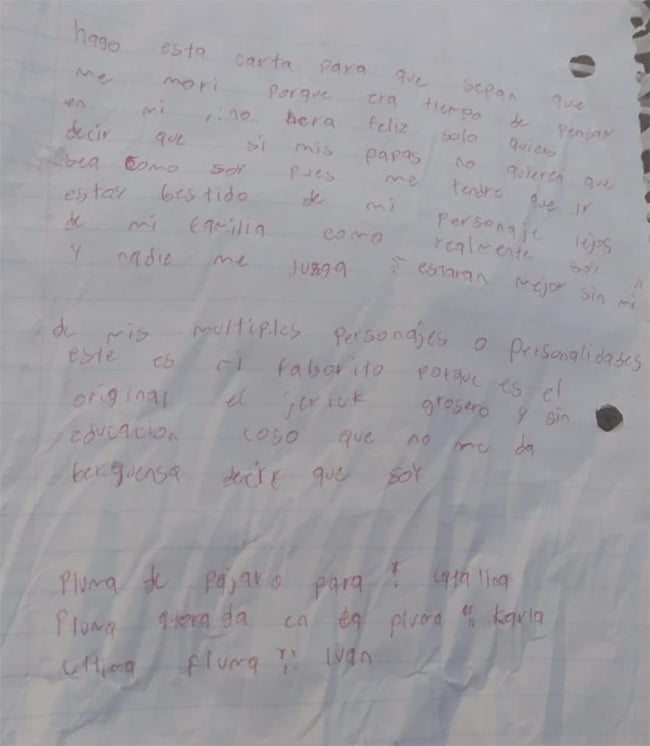 hago esta carta para que sepan que
me mori porque era tiempo de pensar
en mi ¡no bera feliz solo quiero
decir que si mis papas no quieren que
sea como soy pues me tendre que ir
estar bestido de mi personaje lejos
de mi familia como realmente soi
y nadie me juzga estaran mejor sin mi
de mis multiples personajes o personalidades
este es mi faborito porque es el
original el jerick grosero y sin
educacion coso que no me da
berguensa decir que soy
Pluma de pajaro para Catalina
Pluma en pluma Karla
ultima pluma Ivan